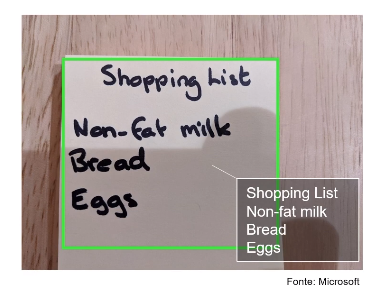 Shopping List
Non-fat milk
Bread
Eggs
Shopping List
Non-fat milk
Bread
Eggs
Fonte: Microsoft